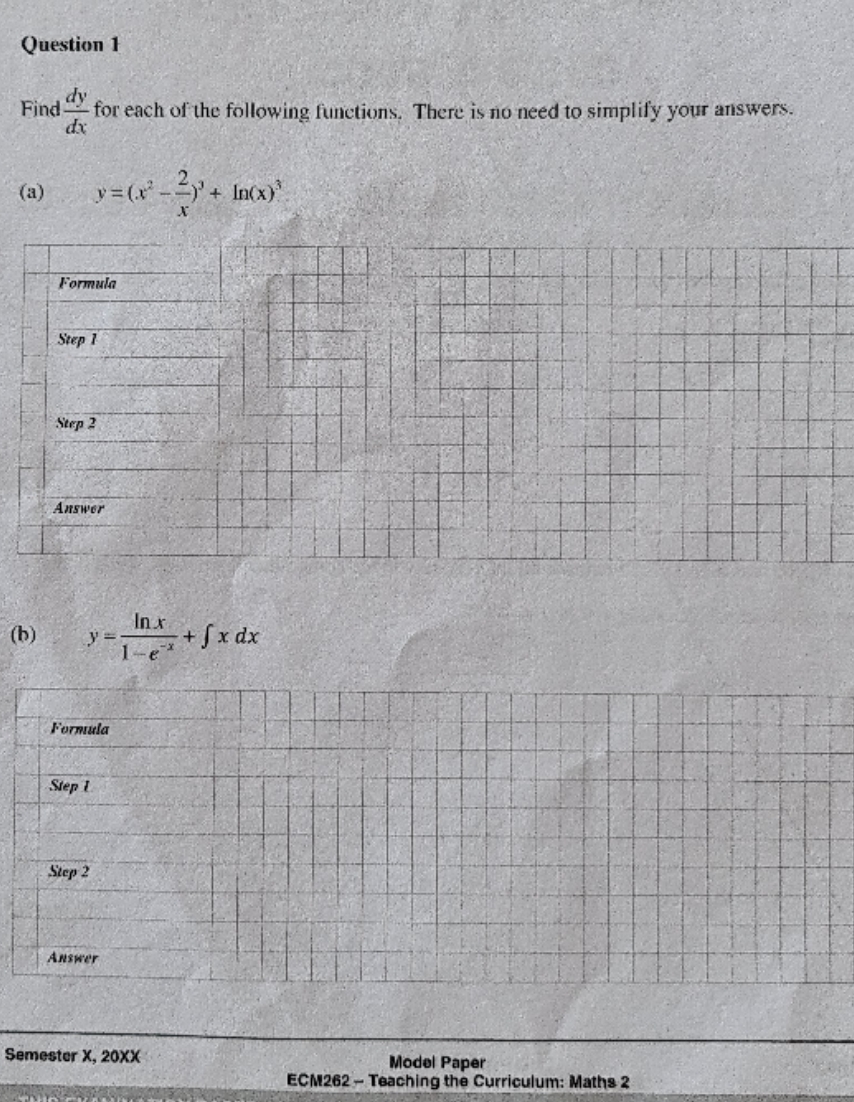 Question 1
Find dy/dx for each of the following functions. There is no need to simplify your answers.
(a) y = (x² − 2/x)⁹ + ln(x)³
Formula
Step 1
Step 2
Answer
(b) y = ln x / 1 − e⁻ˣ + ∫ x dx
Formula
Step 1
Step 2
Answer
Semester X, 20XX
Model Paper
ECM262 – Teaching the Curriculum: Maths 2